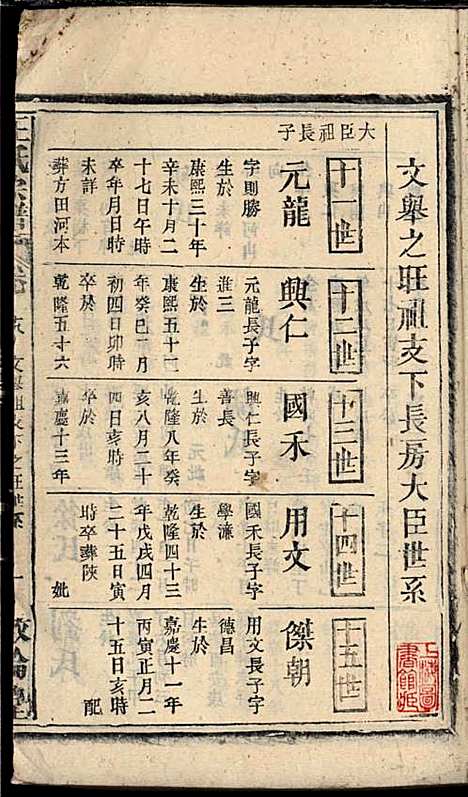 文舉之旺祖支下長房大臣世系
大臣祖長子
十一世
元龍
字則勝
生於
康熙三十年
辛未十月二
十七日午時
卒年月日時
未詳
葬方田河本
十二世
興仁
元龍長子字
淮三
生於
康熙五十二
年癸巳二月
初四日卯時
卒於
乾隆五十六
十三世
國禾
興仁長子字
善長
生於
乾隆八年癸
亥八月二十
四日亥時
卒於
嘉慶十三年
十四世
用文
國禾長子字
學濂
生於
乾隆四十三
年戊戌四月
二十五日寅
時卒葬陝
妣
十五世
傑朝
用文長子字
德昌
生於
嘉慶十一年
丙寅正月二
十五日亥時
配
王氏宗譜
文舉祖支下之旺世系
敦倫堂
上海圖書館藏